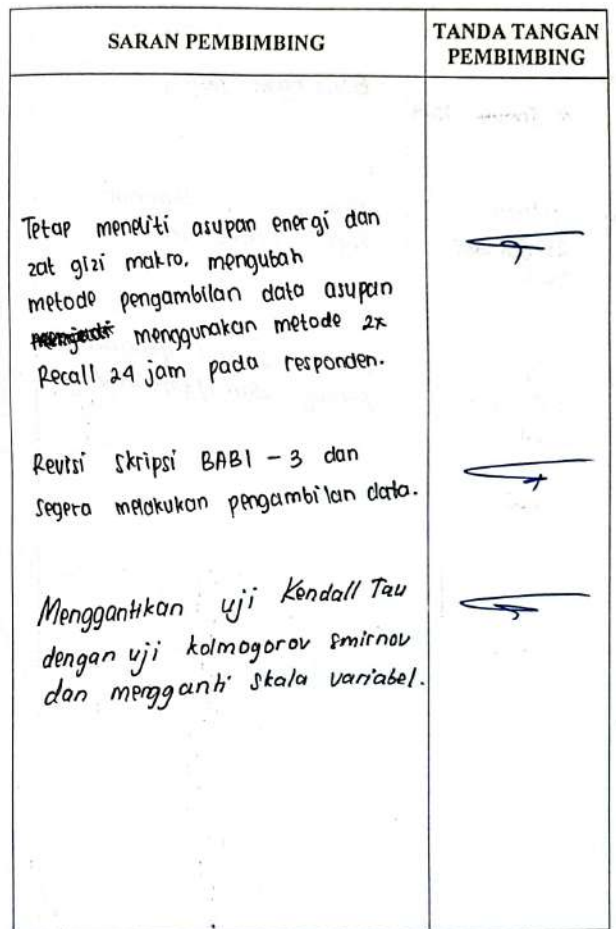 SARAN PEMBIMBING
TANDA TANGAN
PEMBIMBING
Tetap meneliti asupan energi dan
zat gizi makro, mengubah
metode pengambilan data asupan
menggunakan metode 2x
Recall 24 jam pada responden.
Revisi Skripsi BAB1 - 3 dan
Segera melakukan pengambilan data.
Menggantikan uji Kendall Tau
dengan uji kolmogorov smirnov
dan mengganti skala variabel.